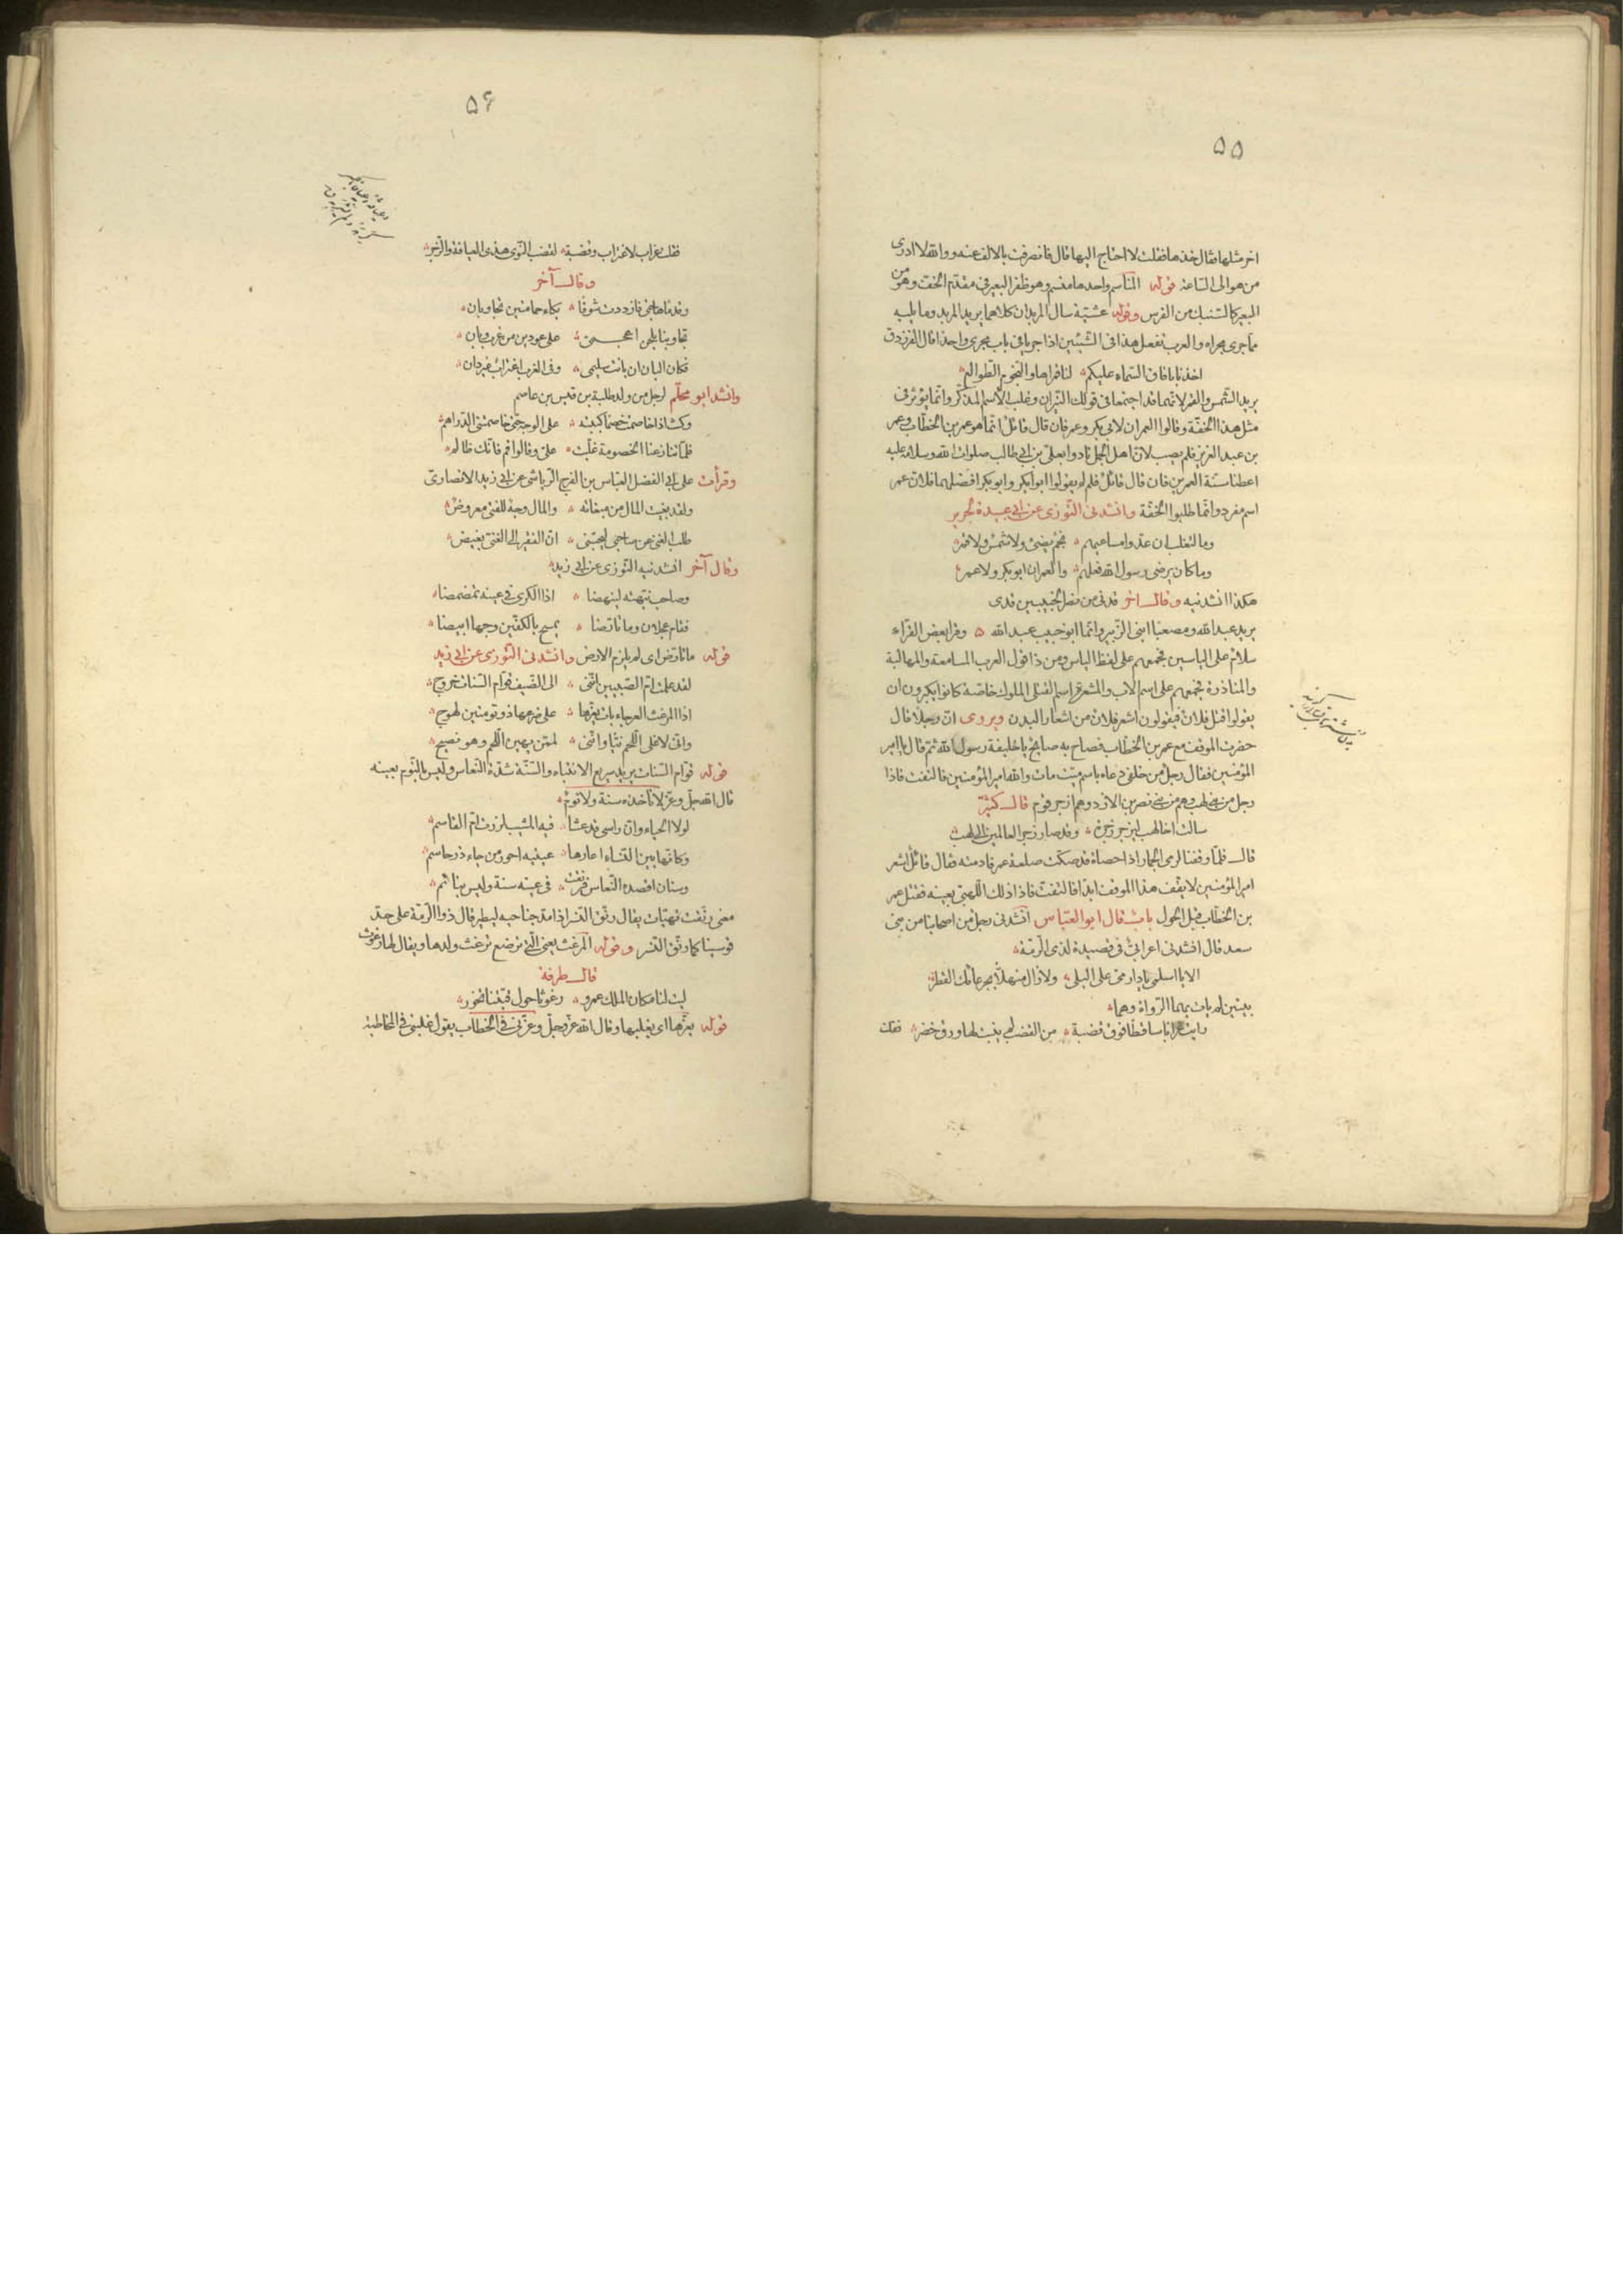 ٥٥
اخر مثلها فقال خذها فقلت لا احتاج اليها قال فانصرفت بالالف عنه ووالله لا ادرى
من هو الى الساعة قوله المناسم واحدها منسم وهو ظفر البعير فى مقدم الخف وهو من
البعير كالسنبك من الفرس وقوله عشية سال المربدان كلاهما يريد المربد وما يليه
مما جرى مجراه والعرب تفعل هذا فى الشيئين اذا جريا فى باب مجرى واحدا قال الفرزدق
اخذنا بافاق السماء عليكم لنا قمراها والنجوم الطوالع
يريد الشمس والقمر لانهما قد اجتمعا فى قولك النيران وغلب الاسم المذكر وانما يؤثر فى
مثل هذا الخفة وقالوا العمران لابى بكر وعمر فان قال قائل انما هو عمر بن الخطاب وعمر
بن عبد العزيز فلم يصب لان اهل الجمل نادوا بعلى بن ابى طالب صلوات الله وسلامه عليه
اعطنا سنة العمرين فان قال قائل فلم لم يقولوا ابوا بكر وابو بكر افضلهما فلان عمر
اسم مفرد وانما طلبوا الخفة وانشدنى التوزى عن ابى عبيدة لجرير
وما لتغلب ان عدوا مساعيهم نجم يضئ ولا شمس ولا قمر
وما كان يرضى رسول الله فعلهم والعمران ابو بكر ولا عمر
هكذا انشدنيه وقال اخر قدنى من نصر الخبيبين قدى
يريد عبد الله ومصعبا ابنى الزبير وانما ابو خبيب عبد الله وقرا بعض القراء
سلام على الياسين فجمعهم على لفظ الياس ومن ذا قول العرب المسامعة والمهالبة
والمناذرة فجمعهم على اسم الاب والمشعرة اسم لقتلى الملوك خاصة كانوا يكبرون ان
يقولوا قتل فلان فيقولون اشعر فلان من اشعار البدن ويروى ان رجلا قال
حضرت الموقف مع عمر بن الخطاب فصاح به صايح يا خليفة رسول الله ثم قال يا امير
المؤمنين فقال رجل من خلفى دعاه باسم ميت مات والله امير المؤمنين فالتفت فاذا
رجل من بنى لهب وهم من بنى نصر بن الازد وهم ازجر قوم قال كثير
سالت اخا لهب ليزجر زجرة وقد صار زجر العالمين الى لهب
قال فلما وقفنا لرمى الجمار اذا حصاة قد صكت صلعة عمر فادمته فقال قائل اشعر
امير المؤمنين لا يقف هذا الموقف ابدا فالتفت فاذا ذلك اللهبى بعينه فقتل عمر
بن الخطاب قبل الحول باب قال ابو العباس انشدنى رجل من اصحابنا من بنى
سعد قال انشدنى اعرابى فى قصيدة لذى الرمة
الا يا اسلمى يا دار مى على البلى ولا زال منهلا بجرعائك القطر
بيتين لم يات بهما الرواة وهما
رايت غرابا ساقطا فوق قضبة من القضب لم ينبت لها ورق خضر فقلت
٥٦
فقلت غراب لاغتراب وقضبة لقضب النوى هذى العيافة والزجر
وقال آخر
وقد ما هاجنى فازددت شوقا بكاء حمامتين تجاوبان
تجاوبتا بلحن اعجمى على عودين من غرب وبان
فكان البان ان بانت سليمى وفى الغرب اغتراب غير دان
وانشد ابو محلم لرجل من ولد طلبة بن قيس بن عاصم
وكنت اذا خاصمت خصما كببته على الوجه حتى خاصمتنى الدراهم
فلما تنازعنا الخصومة غلبت على وقالوا قم فانك ظالم
وقرأت على ابى الفضل العباس بن الفرج الرياشى عن ابى زيد الانصارى
ولقد بغيت المال من مبغاته والمال وجه للفتى معروض
طلب الغنى عن صاحبى ليحبنى ان الفقير الى الغنى بغيض
وقال آخر انشدنيه التوزى عن ابى زيد
وصاحب نبهته لينهضا اذا الكرى فى عينه تمضمضا
فقام عجلان وما تارضا يمسح بالكفين وجها ابيضا
قوله ما تارض اى لم يلزم الارض وانشدنى التوزى عن ابى زيد
لقد علمت ام الصبيين اننى الى الضيف قوام السنات خروج
اذا المرغث العوجاء بات يعزها على ضرعها ذو تومتين لهوج
وانى لاغلى اللحم نيا واننى لممن يهين اللحم وهو نضيج
قوله قوام السنات يريد سريع الانتباه والسنة شدة النعاس وليس بالنوم بعينه
قال الله جل وعز لا تأخذه سنة ولا نوم
لولا الحياء وان راسى قد عشا فيه المشيب لزرت ام القاسم
وكانها بين النساء اعارها عينيه احور من جاءذر جاسم
وسنان اقصده النعاس فرنقت فى عينه سنة وليس بنائم
معنى رنقت تهيات يقال رنق النسر اذا مد جناحيه ليطير قال ذو الرمة على حد
قوسينا كما رنق النسر وقوله المرغث يعنى التى ترضع ترغث ولدها ويقال لها رغوث
قال طرفة
ليت لنا مكان الملك عمرو رغوثا حول قبتنا تخور
قوله يعزها اى يغلبها وقال الله عز وجل وعزنى فى الخطاب يقول غلبنى فى المخاطبة